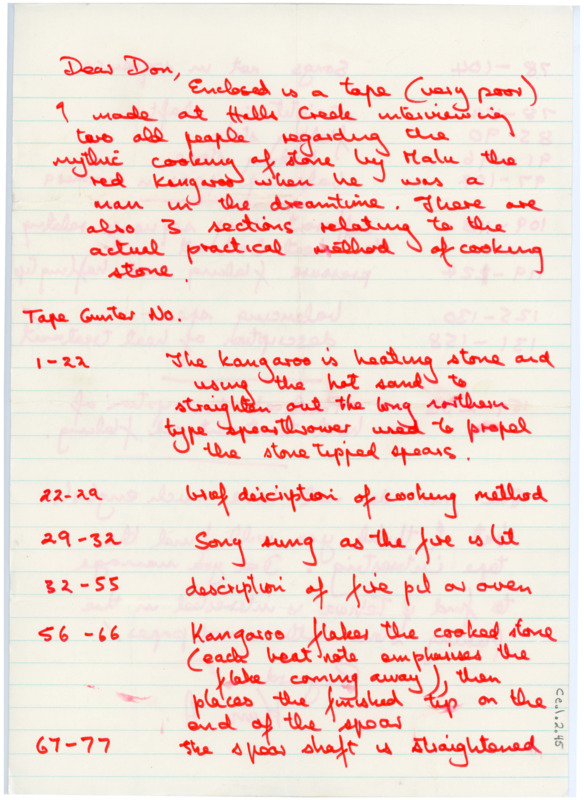 Dear Don,
Enclosed is a tape (very poor)
I made at Halls Creek interviewing
two old people regarding the
mythic cooking of stone by Malu the
red kangaroo when he was a
man in the dreamtime. There are
also 3 sections relating to the
actual practical method of cooking
stone.
Tape Counter No.
1-22 The kangaroo is heating stone and
using the hot sand to
straighten out the long northern
type spearthrower used to propel
the stone tipped spears.
22-29 brief discription of cooking method
29-32 Song sung as the fire is lit
32-55 description of fire pit or oven
56-66 Kangaroo flakes the cooked stone
(each beat note emphasises the
flake coming away), then
places the finished tip on the
end of the spear
67-77 The spear shaft is straightened